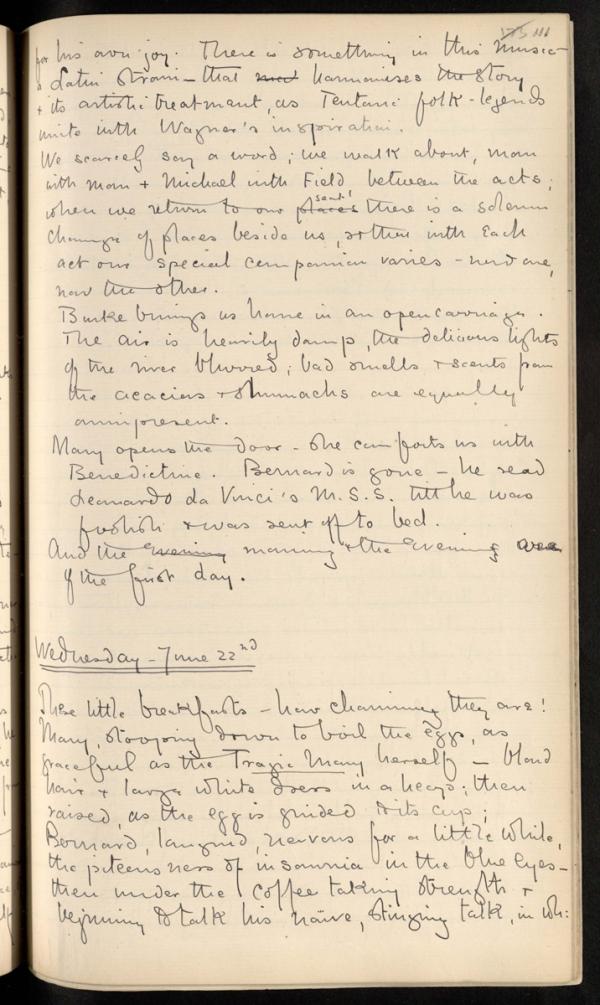 111
for his own joy. There is something in this music
a Latin strain – that harmonises the story
& its artistic treatment, as Teutonic folk-legends
unite with Wagner's inspiration.
We scarcely say a word; we walk about, mom
with mom & Michael with Field between the acts;
seats!
when we return to our places there is a solemn
change of places beside us, so that with each
act our special companion varies – now one,
now the other.
Burke brings us home in an open carriage.
The air is heavily damp, the delicious lights
of the river blurred; bad smells & scents from
the acacias & shumachs are equally
omnipresent.
Mary opens the door – she comforts us with
Benedictine. Bernard is gone – he read
Leonardo da Vinci's M.S.S. till he was
foolish & was sent off to bed.
And the evening morning & the evening were
of the first day.
Wednesday – June 22nd
These little breakfasts – how charming they are!
Mary, stooping down to boil the eggs, as
graceful as the Tragic Mary herself – bland
hair & large white in a heap; then
raised, as the egg is guided to its cup;
Bernard, languid, nervous for a little while,
the piteousness of insomnia in the blue eyes –
then under the coffee taking strength &
beginning to talk his naïve, stinging talk, in wh: